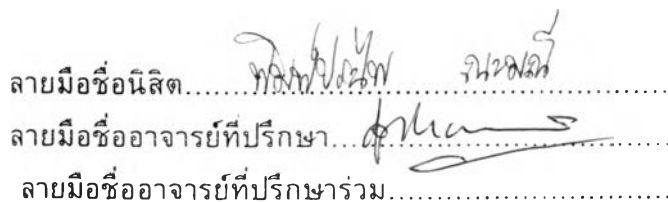 ลายมือชื่อนิสิต........................................................
ลายมือชื่ออาจารย์ที่ปรึกษา........................................
ลายมือชื่ออาจารย์ที่ปรึกษาร่วม..............................